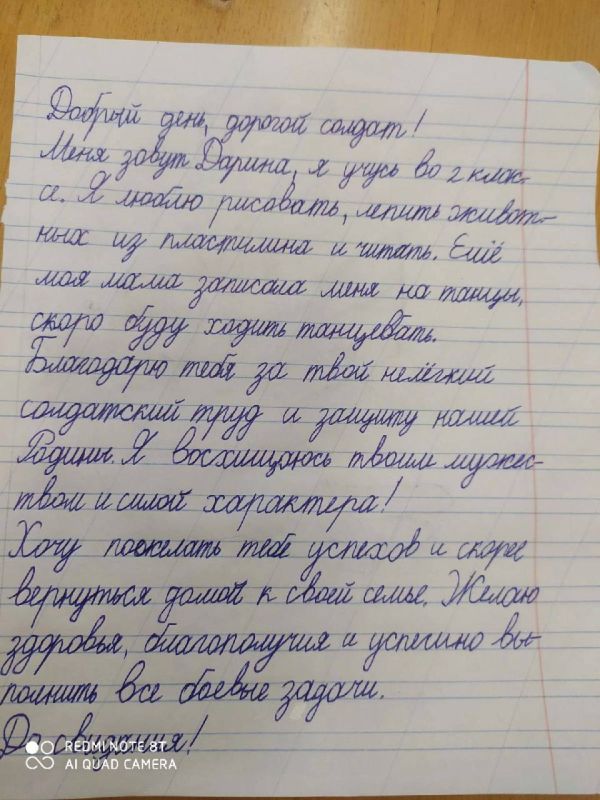 Добрый день, дорогой солдат!
Меня зовут Дарина, я учусь во 2 клас-
се. Я люблю рисовать, лепить живот-
ных из пластилина и читать. Ещё
моя мама записала меня на танцы,
скоро буду ходить танцевать.
Благодарю тебя за твой нелёгкий
солдатский труд и защиту нашей
Родины. Я восхищаюсь твоим мужес-
твом и силой характера!
Хочу пожелать тебе успехов и скорее
вернуться домой к своей семье. Желаю
здоровья, благополучия и успешно вы-
полнить все боевые задачи.
До свидания!
REDMI NOTE 8T
AI QUAD CAMERA